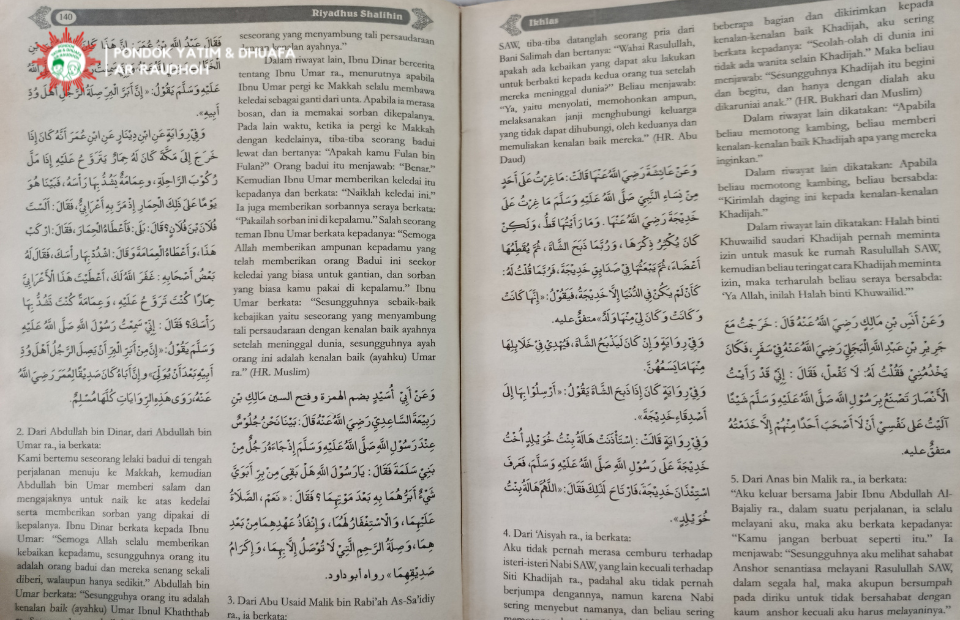 140
Riyadhus Shalihin
PONDOK YATIM & DHUAFA
AR RAUDHOH
فَقَالَ عَبْدُ اللهِ بْنُ عُمَرَ: إِنَّ هَذَا كَانَ
عَلَيْهِ وَسَلَّمَ يَقُولُ: «إِنَّ أَبَرَّ الْبِرِّ صِلَةُ الرَّجُلِ أَهْلَ وُدِّ
أَبِيهِ».
وَفِي رِوَايَةٍ عَنِ ابْنِ دِينَارٍ عَنِ ابْنِ عُمَرَ أَنَّهُ كَانَ إِذَا
خَرَجَ إِلَى مَكَّةَ كَانَ لَهُ حِمَارٌ يَتَرَوَّحُ عَلَيْهِ إِذَا مَلَّ
رُكُوبَ الرَّاحِلَةِ، وَعِمَامَةٌ يَشُدُّ بِهَا رَأْسَهُ، فَبَيْنَا هُوَ
يَوْمًا عَلَى ذَلِكَ الْحِمَارِ إِذْ مَرَّ بِهِ أَعْرَابِيٌّ، فَقَالَ: أَلَسْتَ
فُلَانَ بْنَ فُلَانٍ؟ قَالَ: بَلَى: فَأَعْطَاهُ الْحِمَارَ، فَقَالَ: ارْكَبْ
هَذَا، وَأَعْطَاهُ الْعِمَامَةَ وَقَالَ: اشْدُدْ بِهَا رَأْسَكَ، فَقَالَ لَهُ
بَعْضُ أَصْحَابِهِ: غَفَرَ اللهُ لَكَ، أَعْطَيْتَ هَذَا الْأَعْرَابِيَّ
حِمَارًا كُنْتَ تَرَوَّحُ عَلَيْهِ، وَعِمَامَةً كُنْتَ تَشُدُّ بِهَا
رَأْسَكَ؟ فَقَالَ: إِنِّي سَمِعْتُ رَسُولَ اللهِ صَلَّى اللهُ عَلَيْهِ
وَسَلَّمَ يَقُولُ: «إِنَّ مِنْ أَبَرِّ الْبِرِّ أَنْ يَصِلَ الرَّجُلُ أَهْلَ وُدِّ
أَبِيهِ بَعْدَ أَنْ يُوَلِّيَ» وَإِنَّ أَبَاهُ كَانَ صَدِيقًا لِعُمَرَ رَضِيَ اللهُ
عَنْهُ، رَوَى هَذِهِ الرِّوَايَاتِ كُلَّهَا مُسْلِمٌ.
2. Dari Abdullah bin Dinar, dari Abdullah bin
Umar ra., ia berkata:
Kami bertemu seorang lelaki badui di tengah
perjalanan menuju ke Makkah, kemudian
Abdullah bin Umar memberi salam dan
mengajaknya untuk naik ke atas kedelai
serta memberikan sorban yang dipakai di
kepalanya. Ibnu Dinar berkata kepada Ibnu
Umar: "Semoga Allah selalu memberikan
kebaikan kepadamu, sesungguhnya orang itu
adalah orang badui dan mereka senang sekali
diberi, walaupun hanya sedikit." Abdullah bin
Umar berkata: "Sesungguhnya orang itu adalah
kenalan baik (ayahku) Umar Ibnul Khaththab
seseorang yang menyambung tali persaudaraan
kenalan ayahnya."
Dalam riwayat lain, Ibnu Dinar bercerita
tentang Ibnu Umar ra., menurutnya apabila
Ibnu Umar pergi ke Makkah selalu membawa
keledai sebagai ganti dari unta. Apabila ia merasa
bosan, dan ia memakai sorban dikepalanya.
Pada lain waktu, ketika ia pergi ke Makkah
dengan kedelainya, tiba-tiba seorang badui
lewat dan bertanya: "Apakah kamu Fulan bin
Fulan?" Orang badui itu menjawab: "Benar."
Kemudian Ibnu Umar memberikan keledai itu
kepadanya dan berkata: "Naiklah keledai ini."
Ia juga memberikan sorbannya seraya berkata:
"Pakailah sorban ini di kepalamu." Salah seorang
teman Ibnu Umar berkata kepadanya: "Semoga
Allah memberikan ampunan kepadamu yang
telah memberikan orang Badui ini seekor
keledai yang biasa untuk gantian, dan sorban
yang biasa kamu pakai di kepalamu." Ibnu
Umar berkata: "Sesungguhnya sebaik-baik
kebajikan yaitu seseorang yang menyambung
tali persaudaraan dengan kenalan baik ayahnya
setelah meninggal dunia, sesungguhnya ayah
orang ini adalah kenalan baik (ayahku) Umar
ra." (HR. Muslim)
وَعَنْ أَبِيْ أُسَيْدٍ بضم الهمزة وفتح السين مَالِكِ بْنِ
رَبِيْعَةَ السَّاعِدِيِّ رَضِيَ اللهُ عَنْهُ قَالَ: بَيْنَا نَحْنُ جُلُوْسٌ
عِنْدَ رَسُوْلِ اللهِ صَلَّى اللهُ عَلَيْهِ وَسَلَّمَ إِذْ جَاءَهُ رَجُلٌ مِنْ
بَنِيْ سَلِمَةَ فَقَالَ: يَا رَسُوْلَ اللهِ هَلْ بَقِيَ مِنْ بِرِّ أَبَوَيَّ
شَيْءٌ أَبَرُّهُمَا بِهِ بَعْدَ مَوْتِهِمَا؟ فَقَالَ: «نَعَمْ، الصَّلَاةُ
عَلَيْهِمَا، وَالْاِسْتِغْفَارُ لَهُمَا، وَإِنْفَاذُ عَهْدِهِمَا مِنْ بَعْدِ
هِمَا، وَصِلَةُ الرَّحِمِ الَّتِيْ لَا تُوْصَلُ إِلَّا بِهِمَا، وَإِكْرَامُ
صَدِيْقِهِمَا» رواه أبو داود.
3. Dari Abu Usaid Malik bin Rabi'ah As-Sa'idiy
ra., ia berkata:
Ikhlas
SAW, tiba-tiba datanglah seorang pria dari
Bani Salimah dan bertanya: "Wahai Rasulullah,
apakah ada kebaikan yang dapat aku lakukan
untuk berbakti kepada kedua orang tua setelah
mereka meninggal dunia?" Beliau menjawab:
"Ya, yaitu menyolati, memohonkan ampun,
melaksanakan janji menghubungi keluarga
yang tidak dapat dihubungi, oleh keduanya dan
memuliakan kenalan baik mereka." (HR. Abu
Daud)
وَعَنْ عَائِشَةَ رَضِيَ اللهُ عَنْهَا قَالَتْ: مَا غِرْتُ عَلَى أَحَدٍ
مِنْ نِسَاءِ النَّبِيِّ صَلَّى اللهُ عَلَيْهِ وَسَلَّمَ مَا غِرْتُ عَلَى
خَدِيْجَةَ رَضِيَ اللهُ عَنْهَا. وَمَا رَأَيْتُهَا قَطُّ، وَلَكِنْ
كَانَ يُكْثِرُ ذِكْرَهَا، وَرُبَّمَا ذَبَحَ الشَّاةَ، ثُمَّ يُقَطِّعُهَا
أَعْضَاءً، ثُمَّ يَبْعَثُهَا فِيْ صَدَائِقِ خَدِيْجَةَ، فَرُبَّمَا قُلْتُ لَهُ:
كَأَنْ لَمْ يَكُنْ فِي الدُّنْيَا إِلَّا خَدِيْجَةُ، فَيَقُوْلُ: «إِنَّهَا كَانَتْ
وَكَانَتْ وَكَانَ لِيْ مِنْهَا وَلَدٌ» متفق عليه.
وَفِيْ رِوَايَةٍ وَإِنْ كَانَ لَيَذْبَحُ الشَّاةَ، فَيُهْدِيْ فِيْ خَلَائِلِهَا
مِنْهَا مَا يَسَعُهُنَّ.
وَفِيْ رِوَايَةٍ كَانَ إِذَا ذَبَحَ الشَّاةَ يَقُوْلُ: «أَرْسِلُوْا بِهَا إِلَى
أَصْدِقَاءِ خَدِيْجَةَ».
وَفِيْ رِوَايَةٍ قَالَتْ: اِسْتَأْذَنَتْ هَالَةُ بِنْتُ خُوَيْلِدٍ أُخْتُ
خَدِيْجَةَ عَلَى رَسُوْلِ اللهِ صَلَّى اللهُ عَلَيْهِ وَسَلَّمَ، فَعَرَفَ
اسْتِئْذَانَ خَدِيْجَةَ، فَارْتَاحَ لِذَلِكَ فَقَالَ: «اَللّٰهُمَّ هَالَةُ بِنْتُ
خُوَيْلِدٍ».
4. Dari 'Aisyah ra., ia berkata:
Aku tidak pernah merasa cemburu terhadap
isteri-isteri Nabi SAW, yang lain kecuali terhadap
Siti Khadijah ra., padahal aku tidak pernah
berjumpa dengannya, namun karena Nabi
sering menyebut namanya, dan beliau sering
beberapa bagian dan dikirimkan kepada
kenalan-kenalan baik Khadijah, aku sering
berkata kepadanya: "Seolah-olah di dunia ini
tidak ada wanita selain Khadijah." Maka beliau
menjawab: "Sesungguhnya Khadijah itu begini
dan begitu, dan hanya dengan dialah aku
dikaruniai anak." (HR. Bukhari dan Muslim)
Dalam riwayat lain dikatakan: "Apabila
beliau memotong kambing, beliau memberi
kenalan-kenalan baik Khadijah apa yang mereka
inginkan."
Dalam riwayat lain dikatakan: Apabila
beliau memotong kambing, beliau bersabda:
"Kirimlah daging ini kepada kenalan-kenalan
Khadijah."
Dalam riwayat lain dikatakan: Halah binti
Khuwailid saudari Khadijah pernah meminta
izin untuk masuk ke rumah Rasulullah SAW,
kemudian beliau teringat cara Khadijah meminta
izin, maka terharulah beliau seraya bersabda:
'Ya Allah, inilah Halah binti Khuwailid.'"
وَعَنْ أَنَسِ بْنِ مَالِكٍ رَضِيَ اللهُ عَنْهُ قَالَ: خَرَجْتُ مَعَ
جَرِيْرِ بْنِ عَبْدِ اللهِ الْبَجَلِيِّ رَضِيَ اللهُ عَنْهُ فِيْ سَفَرٍ، فَكَانَ
يَخْدُمُنِيْ فَقُلْتُ لَهُ: لَا تَفْعَلْ، فَقَالَ: إِنِّيْ قَدْ رَأَيْتُ
الْأَنْصَارَ تَصْنَعُ بِرَسُوْلِ اللهِ صَلَّى اللهُ عَلَيْهِ وَسَلَّمَ شَيْئًا
آلَيْتُ عَلَى نَفْسِيْ أَنْ لَا أَصْحَبَ أَحَدًا مِنْهُمْ إِلَّا خَدَمْتُهُ
متفقٌ عليه.
5. Dari Anas bin Malik ra., ia berkata:
"Aku keluar bersama Jabir Ibnu Abdullah Al-
Bajaliy ra., dalam suatu perjalanan, ia selalu
melayani aku, maka aku berkata kepadanya:
"Kamu jangan berbuat seperti itu." Ia
menjawab: "Sesungguhnya aku melihat sahabat
Anshor senantiasa melayani Rasulullah SAW,
dalam segala hal, maka akupun bersumpah
pada diriku untuk tidak bersahabat dengan
kaum anshor kecuali aku harus melayaninya."